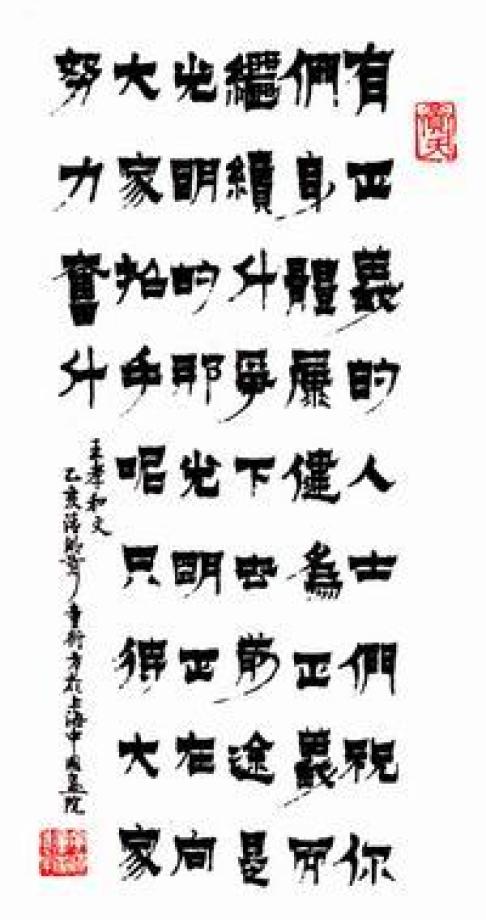 有正義的人士們祝你
們身體康健為正義而
繼續斗爭下去前途是
光明的那光明正在向
大家招手呢只待大家
努力奮斗
王孝和文
乙亥清明童衍方於上海中國畫院